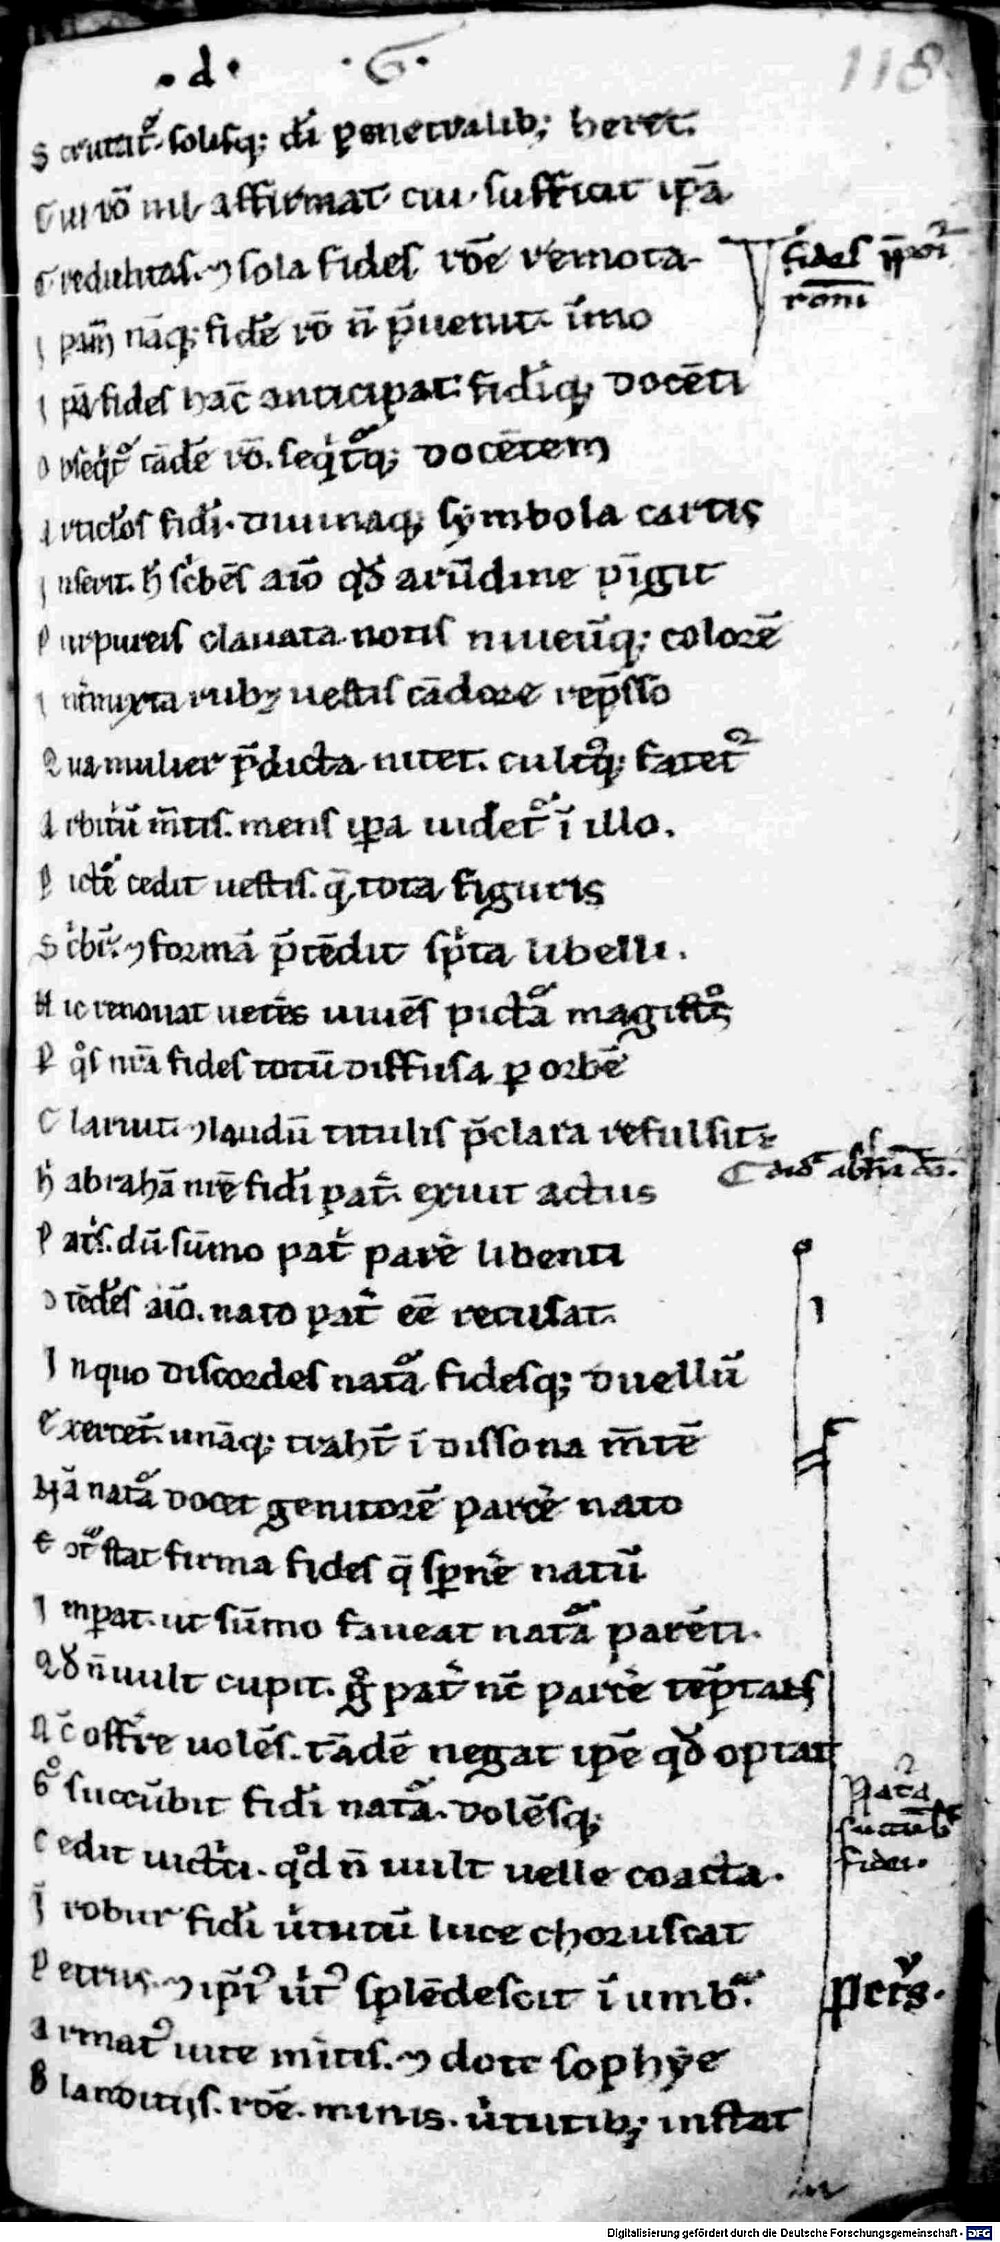 .d. .G. 118
Scrutat᷑. solisq; dī penetralib; heret.
Cui rō nil affirmat cui sufficit ip̄a
Credulitas. ⁊ sola fides rōe remota.
fides p̄poī
rōni
Ipam̄ nāq; fidē rō n̄ p̄uenit. īmo
Ipā fides hāc anticipat. fidīq; docēti
Obseqͥt᷑ tādē rō. seqͥt᷑q; docētem
Articłos fidī. diuinaq; symbola cartis
Inserit. h̄ scͥbēs aīo qđ arūdine pīgit
Purpureis clauata notis niueūq; colorē
Intͥmixta rubꝫ uestis cādore rep̄sso
Qua mulier p̄dicta nitet. cultꝰq; fatet᷑
Arbitͥū m̄tis. mens ip̄a uidet᷑ ī illo.
Pictͤ cedit uestis. q̄ tota figuris
Scͥbit᷑. ⁊ formā p̄tēdit sc͛pta libelli.
Hic renouat uetēs uiuēs pictᷓa magistͦs
P qͦs nrā fides totū diffusa p orbē
Claruit. ⁊ laudū titulis p̄clara refulsit.
h̄ abrahā nrē fidī pat͛. exuit actus
Patͥs. dū sūmo patͥ par͛e libenti
Ostēdēs aīo. nato pat͛ eē recusat.
In quo discordes natᷓa fidesq; duellū
Exercēt. unāq; trahūt ī dissona m̄tē
Nā natᷓa docet genitorē parc͛e nato
Econtͣ stat firma fides q̄ sp̄n͛e natū
Imp̄at. ut sūmo faueat natᷓa parēti.
Qđ n̄ uult cupit. g̊ pat͛ nc̄ parc͛e tēptās
Nc̄ off͛re uolēs. tādē negat ip̄e qđ optat
Gͦ succūbit fidī natᷓa. dolēsq;
Nata
succūb
fidei.
Cedit uictͥci. qđ n̄ uult uelle coacta.
Ī robur fidī u͛tutū luce choruscat
Petrus. ⁊ ip̄iꝰ u͛tꝰ splēdescit ī umbᷓ.
Petrͮs.
Armatꝰ uite m͛itis. ⁊ dote sophye
Blanditiis. rōe. minis. u͛tutib; instat
Digitalisierung gefördert durch die Deutsche Forschungsgemeinschaft - DFG